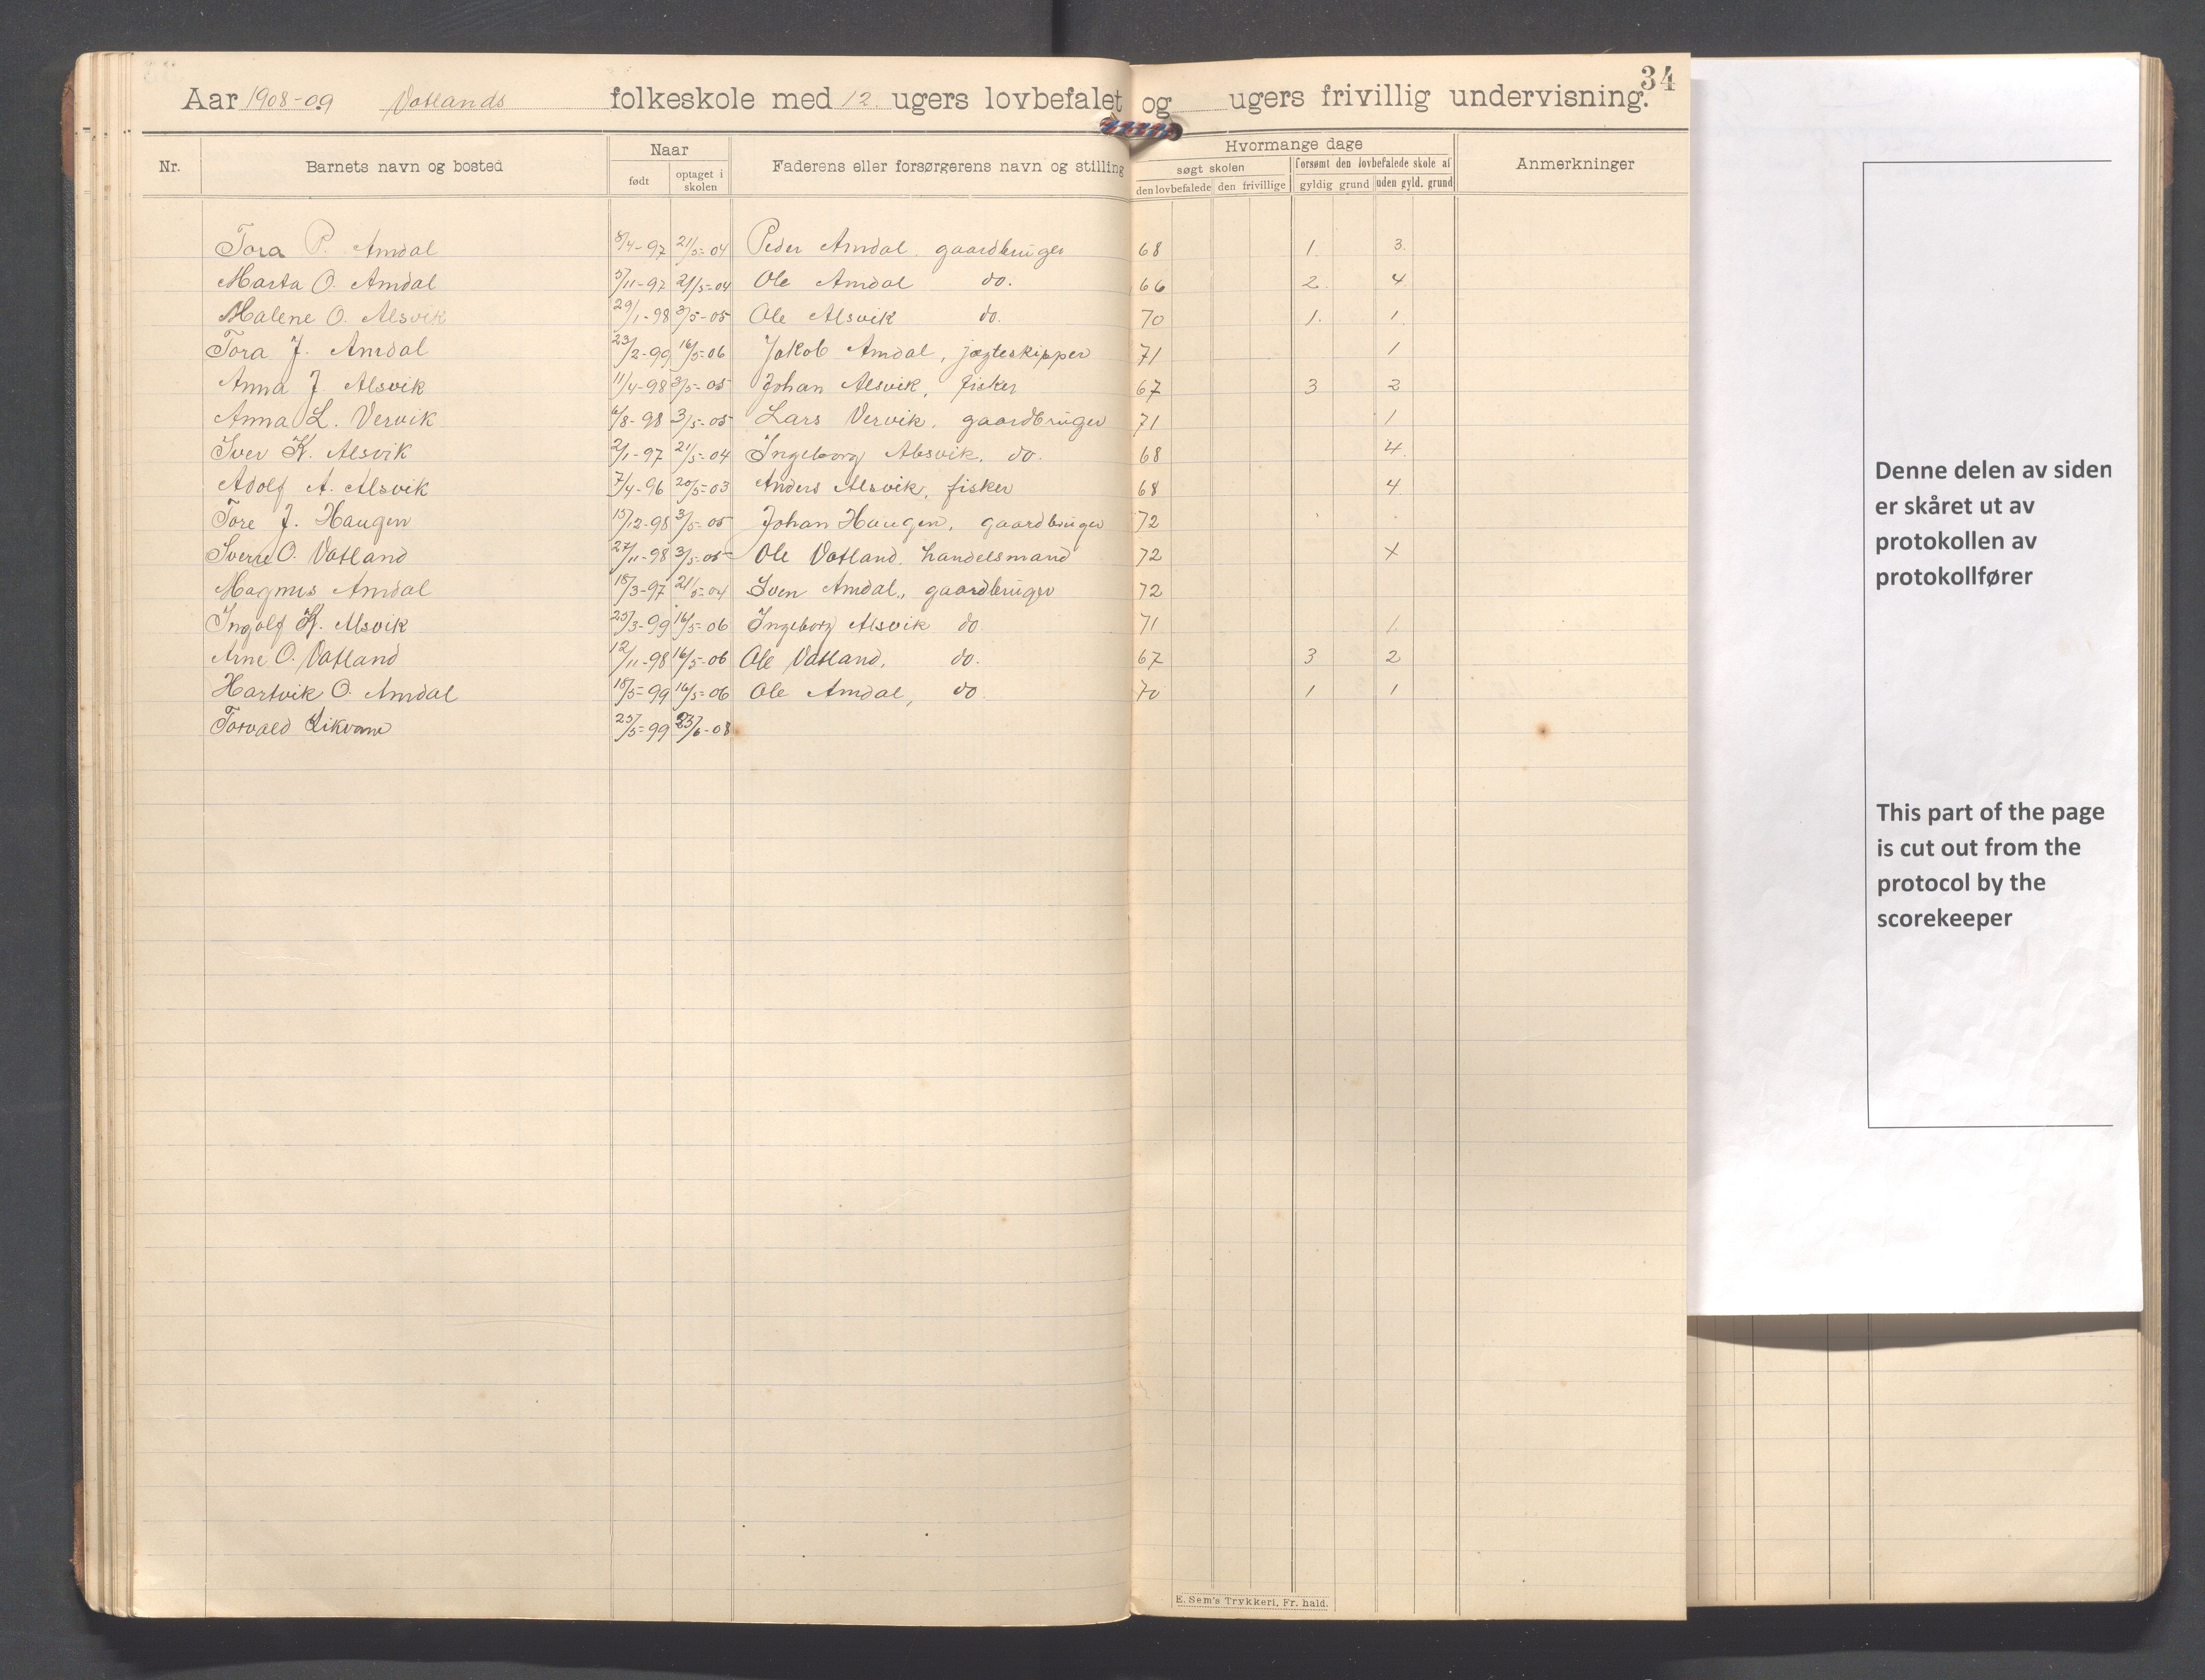 34
Aar 1908-09 Vatlands folkeskole med 12 ugers lovbefalet og ugers frivillig undervisning.
Nr. Barnets navn og bosted Naar født optaget i skolen Faderens eller forsørgerens navn og stilling Hvormange dage søgt skolen den lovbefalede den frivillige forsømt den lovbefalede skole af gyldig grund uden gyld. grund Anmerkninger
Tora P. Amdal 8/4-97 21/5-04 Peder Amdal. gaardbruger 68 1. 3.
Marta O. Amdal 5/11-97 21/5-04 Ole Amdal do. 66 2. 4
Malene O. Alsvik 29/1-98 3/5-05 Ole Alsvik do. 70 1. 1
Tora J. Amdal 23/2-99 16/5-06 Jakob Amdal, jægteskipper 71 1
Anna J. Alsvik 11/4-98 3/5-05 Johan Alsvik, fisker 67 3 2
Anna L. Vervik 6/8-98 3/5-05 Lars Vervik, gaardbruger 71 1
Iver K. Alsvik 2/1-97 21/5-04 Ingeborg Alsvik, do. 68 4.
Adolf A. Alsvik 7/4-96 20/5-03 Anders Alsvik, fisker 68 4
Tore J. Haugen 15/12-98 3/5-05 Johan Haugen, gaardbruger 72
Sverre O. Vatland 27/11-98 3/5-05 Ole Vatland, handelsmand 72 x
Magnus Amdal 18/3-97 21/5-04 Sven Amdal., gaardbruger 72
Ingolf K. Alsvik 25/3-99 16/5-06 Ingeborg Alsvik do 71 1.
Arne O. Vatland 12/11-98 16/5-06 Ole Vatland, do. 67 3 2
Hartvik O. Amdal 18/5-99 16/5-06 Ole Amdal, do 70 1 1
Torvald Likvam 25/5-99 23/6-08
E. Sem's Trykkeri, Fr. hald.
Denne delen av siden
er skåret ut av
protokollen av
protokollfører
This part of the page
is cut out from the
protocol by the
scorekeeper